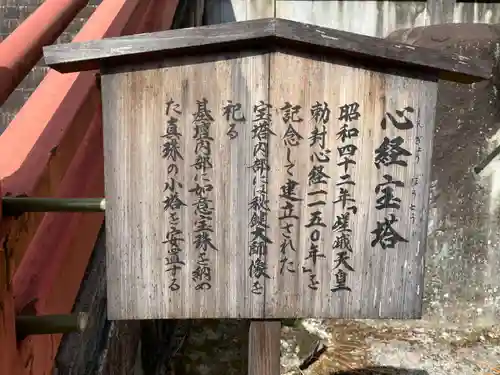 心経宝塔
しんぎょうほうとう
昭和四十二年「嵯峨天皇
勅封心経一一五〇年」を
記念して建立された
宝塔内部には秘鍵大師像を
祀る
基壇内部に如意宝珠を納め
た真珠の小塔を安置する